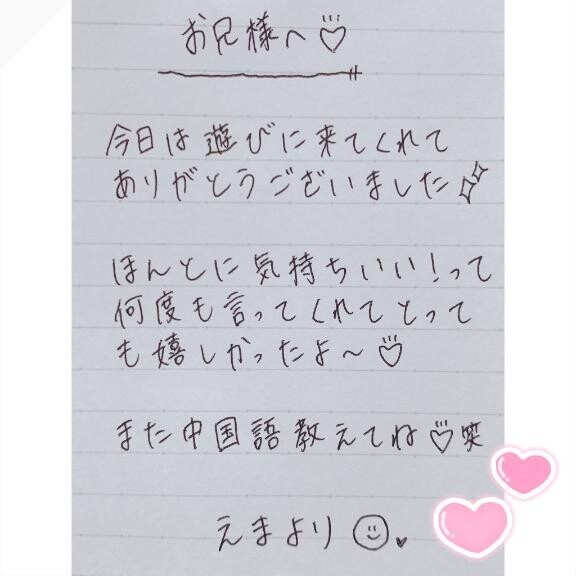 お兄様へ♡
今日は遊びに来てくれて
ありがとうございました✨
ほんとに気持ちいい!って
何度も言ってくれてとって
も嬉しかったよ〜♡
また中国語教えてね♡笑
えまより☺♥